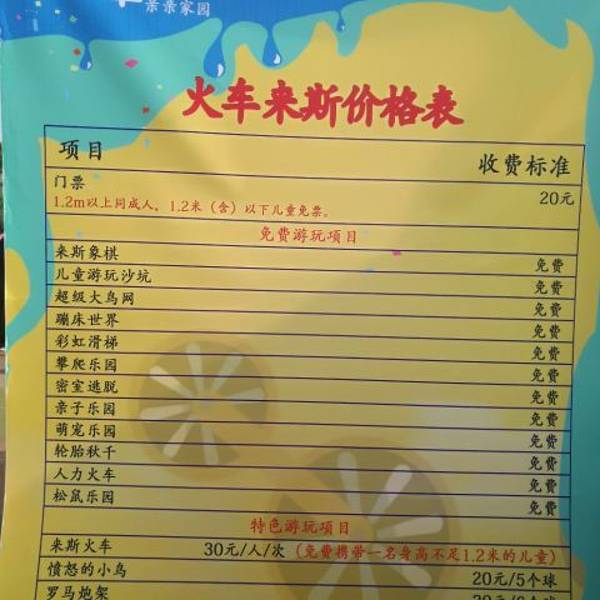 亲亲家园
火车来斯价格表
项目 收费标准
门票 20元
1.2m以上同成人，1.2米（含）以下儿童免票。
免费游玩项目
来斯象棋 免费
儿童游玩沙坑 免费
超级大鸟网 免费
蹦床世界 免费
彩虹滑梯 免费
攀爬乐园 免费
密室逃脱 免费
亲子乐园 免费
萌宠乐园 免费
轮胎秋千 免费
人力火车 免费
松鼠乐园 免费
特色游玩项目
来斯火车 30元/人/次（免费携带一名身高不足1.2米的儿童）
愤怒的小鸟 20元/5个球
罗马炮架